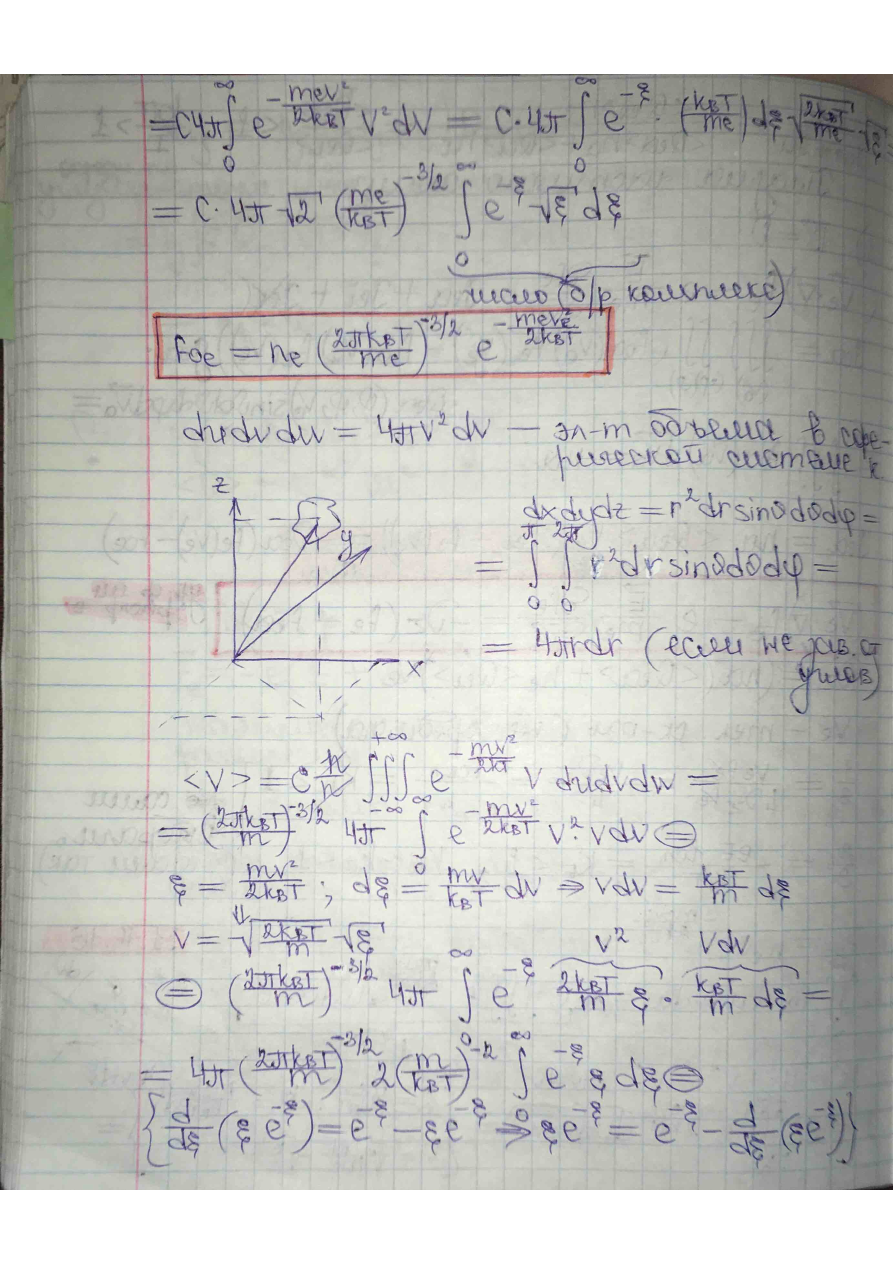 = C4π∫₀^∞ e^{-mₑv²/2k_BT} v²dv = C·4π ∫₀^∞ e^{-ξ} · (k_BT/mₑ) dξ √(2k_BT/mₑ) √ξ =
= C·4π √2 (mₑ/k_BT)^{-3/2} ∫₀^∞ e^{-ξ} √ξ dξ
число (б/р комплекс)
F₀ₑ = nₑ (2πk_BT/mₑ)^{-3/2} e^{-mₑvₑ²/2k_BT}
dudvdw = 4πv²dv — эл-т объема в сфе-
рической системе к.
z
y
x
dxdydz = r²drsinθdθdφ =
= ∫₀^π ∫₀^{2π} r²drsinθdθdφ =
= 4πrdr (если не зав. от
углов)
<v> = C n/n ∫∫∫_{-∞}^{+∞} e^{-mv²/2kT} v dudvdw =
= (2πk_BT/m)^{-3/2} 4π ∫₀^∞ e^{-mv²/2k_BT} v²·vdv ⊜
ξ = mv²/2k_BT ; dξ = mv/k_BT dv ⇒ vdv = k_BT/m dξ
⇓
v = √(2k_BT/m) √ξ
v² vdv
⊜ (2πk_BT/m)^{-3/2} 4π ∫₀^∞ e^{-ξ} 2k_BT/m ξ · k_BT/m dξ =
= 4π(2πk_BT/m)^{-3/2} 2(m/k_BT)^{-2} ∫₀^∞ e^{-ξ} ξ dξ ⊜
{d/dξ (ξ e^{-ξ}) = e^{-ξ} - ξe^{-ξ} ⇒ ξe^{-ξ} = e^{-ξ} - d/dξ (ξe^{-ξ})}